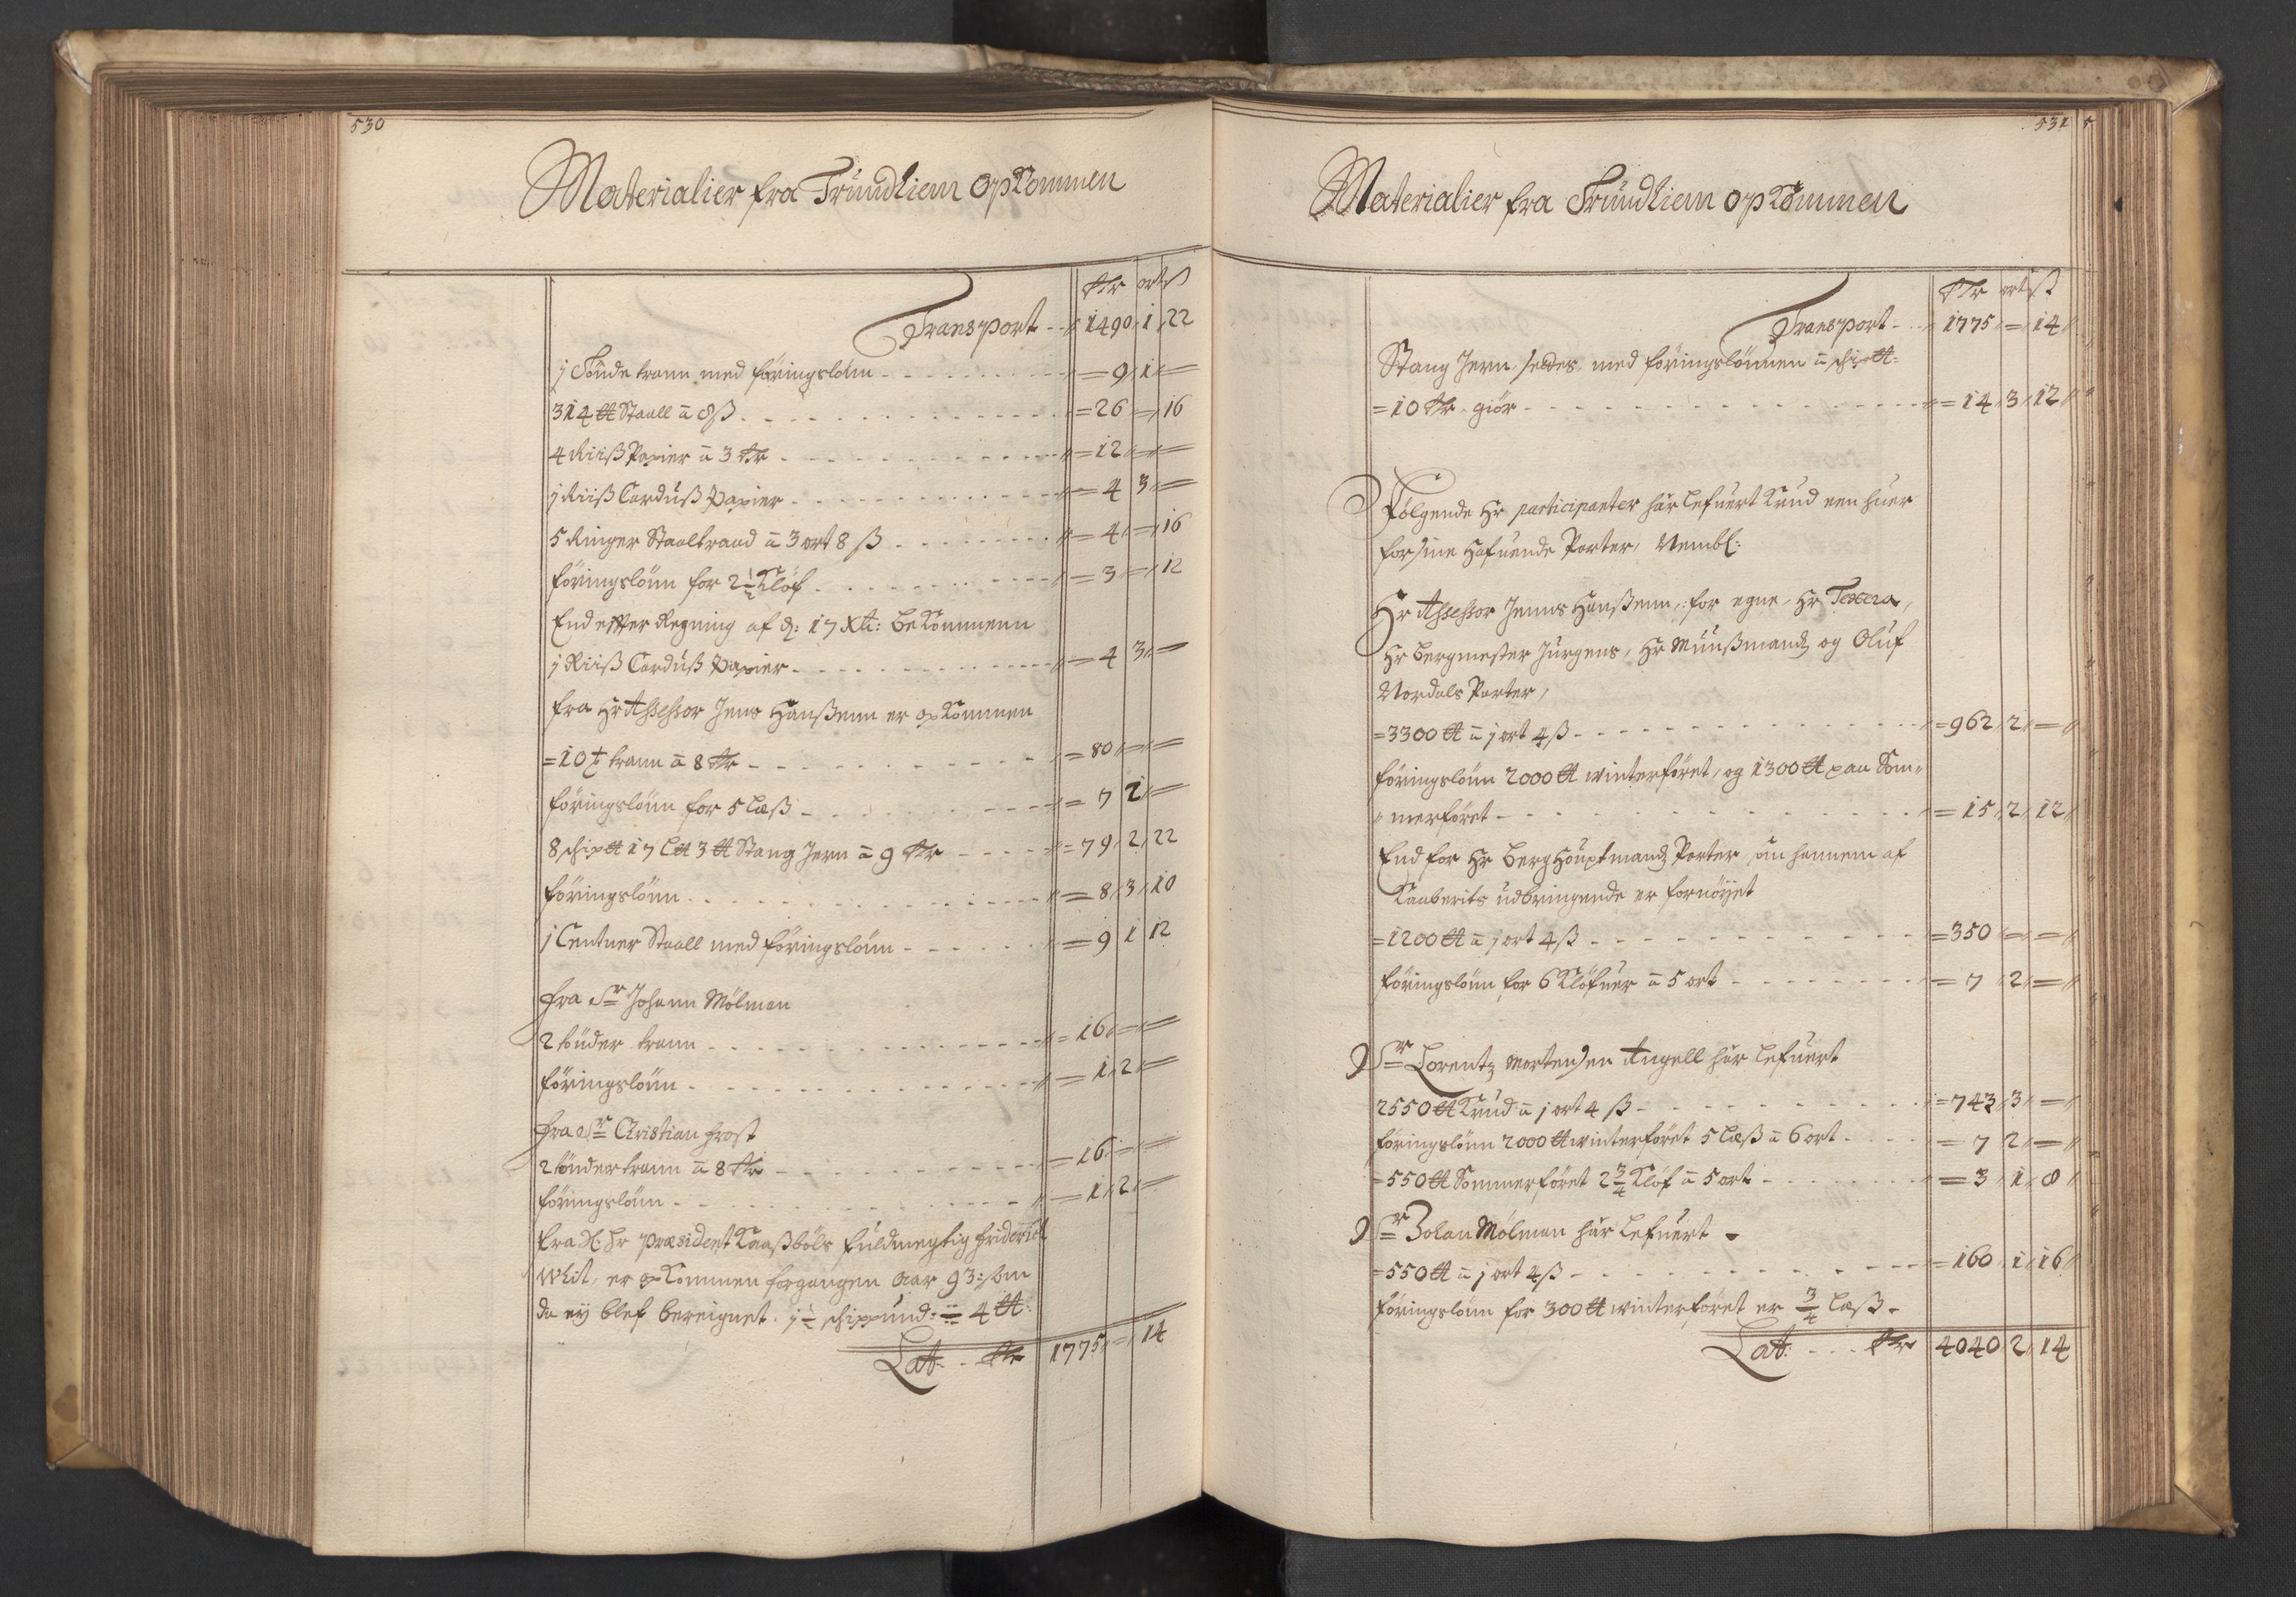 530
Materialier fra Trundhiem opkommen
Rdr ort ß
Transport - - 1490 1 22
j Tönde trann med föringslönn - - - = 9 1 =
314 ℔ Staall â 8 ß - - - = 26 = 16
4 Riiß Papier â 3 Rdr - - - = 12 = =
j Riiß Carduß Papier - - - = 4 3 =
5 Ringer Staaltraad â 3 ort 8 ß - - - = 4 = 16
föringslönn for 2½ Klöf - - - = 3 = 12
End efter Regning af d: 17 Xb: bekommenn
j Riiß Carduß Papier - - - = 4 3 =
fra Hr Assessor Jens Hanßenn er opkommen
= 10 t trann â 8 Rdr - - - = 80 = =
föringslönn for 5 læß - - - = 7 2 =
8 schip℔ 17 L℔ 3 ℔ Stang Jern â 9 Rdr - - - = 79 2 22
föringslönn - - - = 8 3 10
j Centner Staall med föringslönn - - - = 9 1 12
fra Sr Johann Mölman
2 tönder trann - - - = 16 = =
föringslönn - - - = 1 2 =
fra Sr Christian Frost
2 tönder trann â 8 Rdr - - - = 16 = =
föringslönn - - - = 1 2 =
fra H: Hr Præsident Kaaßböls fuldmegtig Friderich
Whit, er opkommen forgangen Aar 93: som
da ey blef bereignet. j½ schippund: = 4 ℔:
Lat: - Rdr 1775 = 14
531
Materialier fra Trundhiem opkommen
Rdr ort ß
Transport - - 1775 = 14
Stang Jern, sedes, med föringslönnen â schip℔:
= 10 Rdr giör - - - = 14 3 12
Fölgende Hr participanter har lefuert Krud een huer
for sine Hafuende Parter, Nembl:
Hr Assessor Jenns Hanßenn, for egne, Hr Texera,
Hr Bergmester Jürgens, Hr Muußmandz og Oluf
Nordals Parter,
= 3300 ℔ â j ort 4 ß - - - = 962 2 =
föringslönn 2000 ℔ winterföret, og 1300 ℔ paa Som-
merföret - - - = 15 2 12
End for Hr Berghouptmandz Parter, om hannem af
Kaaberits udbringende er fornöyet
= 1200 ℔ â j ort 4 ß - - - = 350 = =
föringslönn for 6 Klöfuer â 5 ort - - - = 7 2 =
Sr Lorentz Mortensen Angell har lefuert
2550 ℔ Krud â j ort 4 ß - - - = 743 3 =
föringslönn 2000 ℔ winterföret 5 læß â 6 ort - - = 7 2 =
= 550 ℔ Sommerföret 2¾ Klöf â 5 ort - - - = 3 1 8
Sr Johan Mölman har lefuert -
= 550 ℔ â j ort 4 ß - - - = 160 1 16
föringslönn for 300 ℔ winterföret er ¾ læß -
Lat: - - - Rdr 4040 2 14